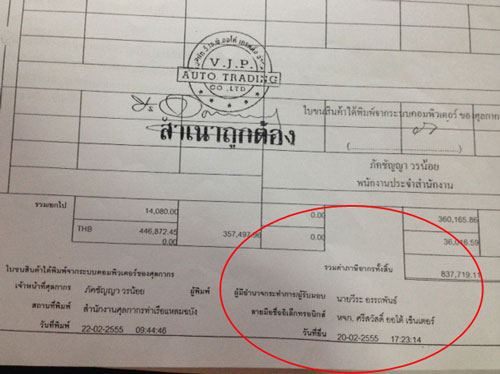 V.J.P.
AUTO TRADING
CO.,LTD.
สำเนาถูกต้อง
ใบขนสินค้าได้พิมพ์จากระบบคอมพิวเตอร์ ของศุลกากร
(....................)
ภัคชัญญา วรน้อย
พนักงานประจำสำนักงาน
รวมยกไป 14,080.00 0.00 360,165.86
THB 446,872.45 357,497.96 36,016.59
0.00 0.00
รวมค่าภาษีอากรทั้งสิ้น 837,719.11
ใบขนสินค้าได้พิมพ์จากระบบคอมพิวเตอร์ของศุลกากร
เจ้าหน้าที่ศุลกากร ภัคชัญญา วรน้อย ผู้พิมพ์ ผู้มีอำนาจกระทำการ/ผู้รับมอบ นายวีระ อรรถพันธ์
สถานที่พิมพ์ สำนักงานศุลกากรท่าเรือแหลมฉบัง ลายมือชื่ออิเล็กทรอนิกส์ หจก. ศรีสวัสดิ์ ยอโต้ เซ็นเตอร์
วันที่พิมพ์ 22-02-2555 09:44:46 วันที่ยื่น 20-02-2555 17:23:14